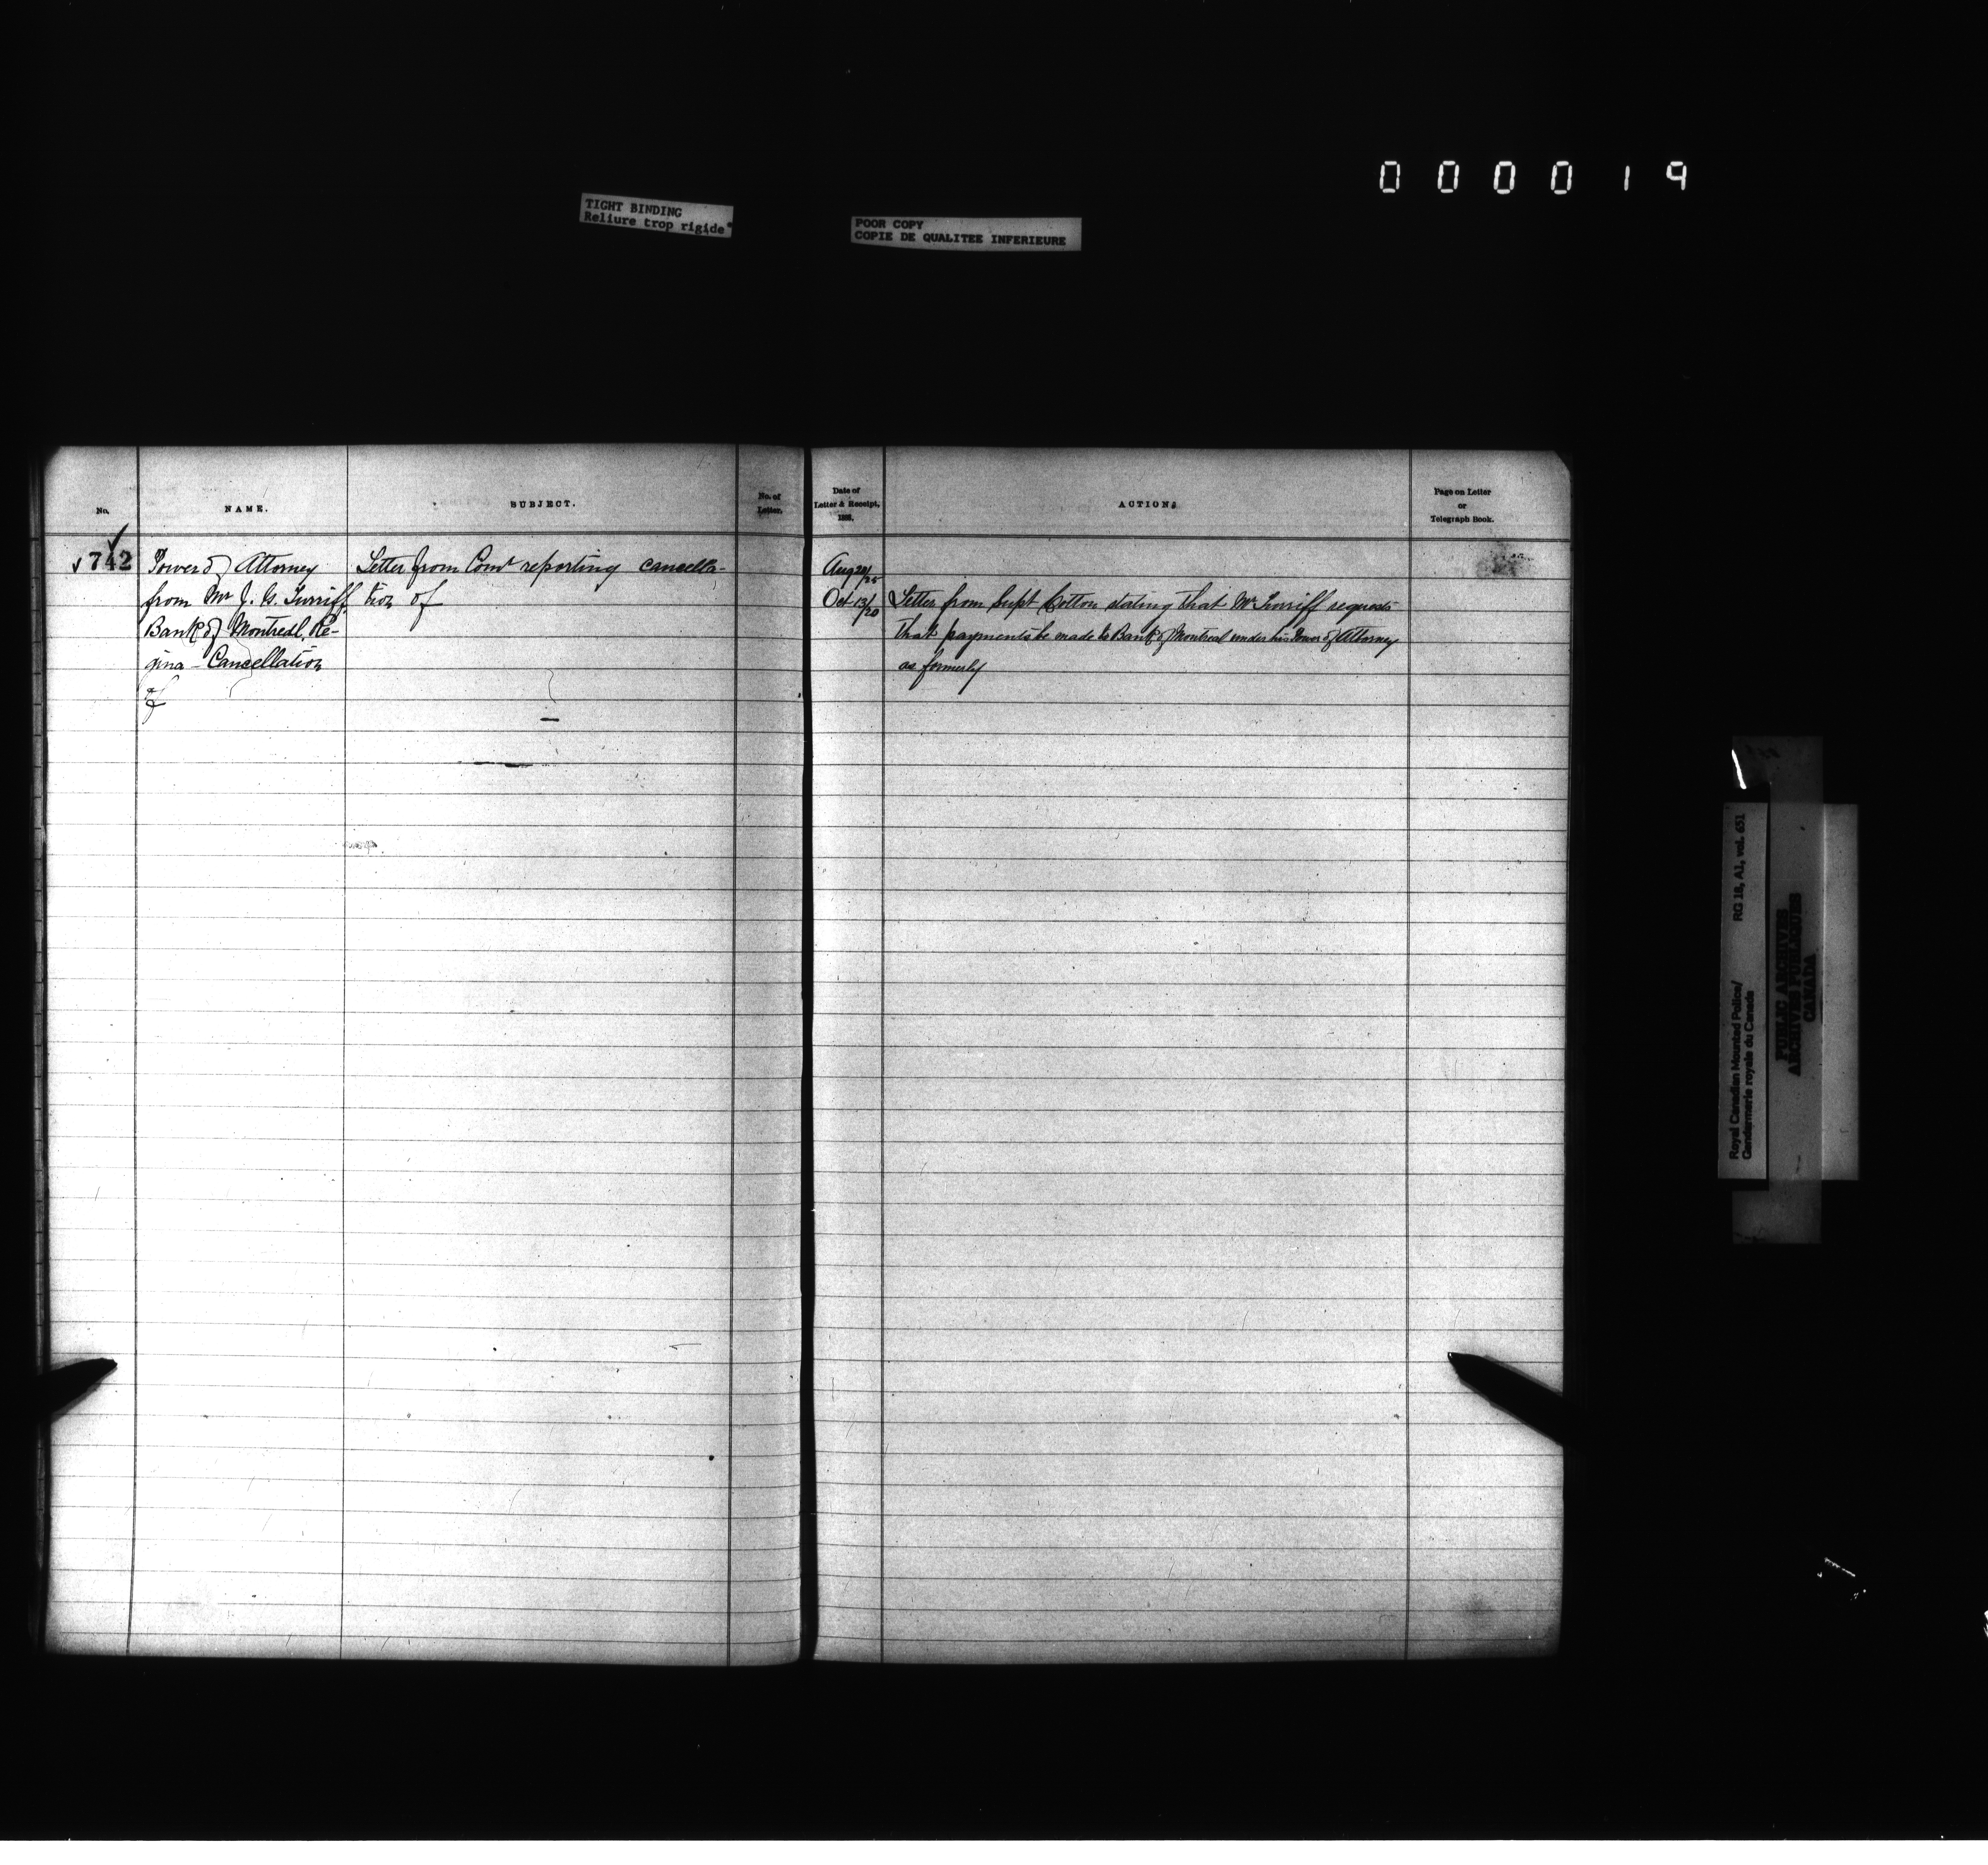 000019
TIGHT BINDING
Reliure trop rigide
POOR COPY
COPIE DE QUALITEE INFERIEURE
No.
NAME.
SUBJECT.
No. of
Letter.
Date of
Letter & Receipt,
188
ACTION
Page on Letter
or
Telegraph Book.
742
Power of Attorney
from Mr J. G. Turriff
Bank of Montreal, Re-
gina - Cancellation
of
Letter from Comr reporting cancella-
tion of
Aug 20/25
Oct 13/20
Letter from Supt Cotton stating that Mr Turriff requests
that payments be made to Bank of Montreal under his Power of Attorney
as formerly
Royal Canadian Mounted Police/
Gendarmerie royale du Canada
RG 18, A1, vol. 651
PUBLIC ARCHIVES
ARCHIVES PUBLIQUES
CANADA